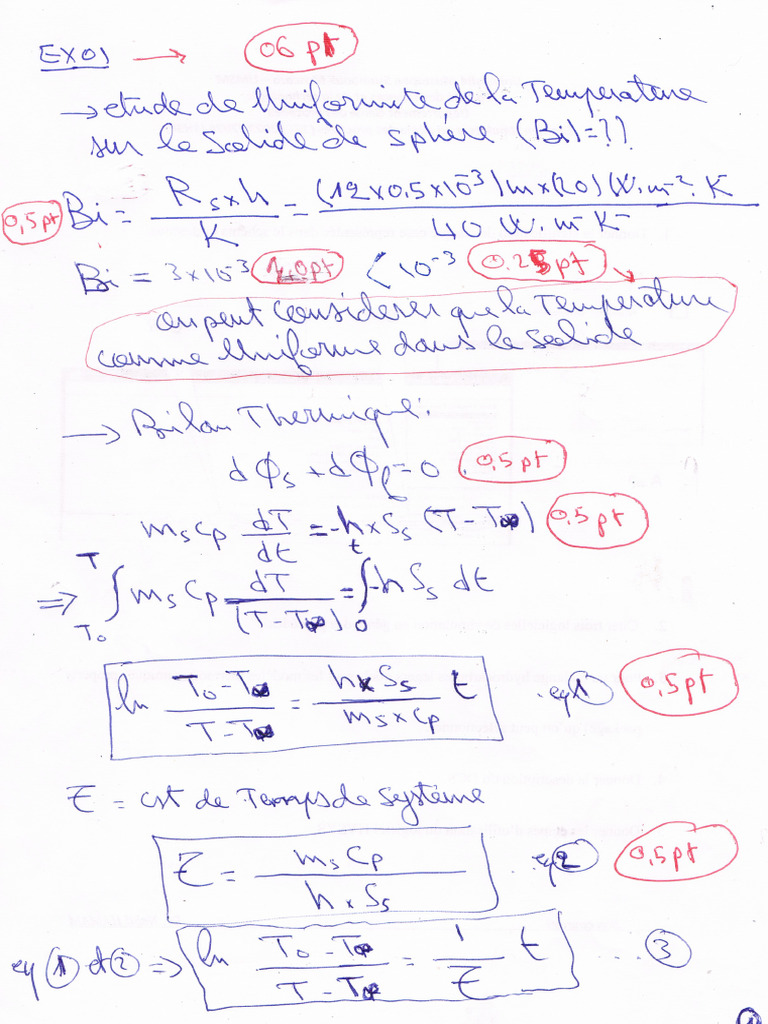 EX01 → 06 pt
→ etude de Uniformite de la Temperature
sur le Solide de sphère (Bi)=??
0,5pt Bi = (Rs x h)/K = ((12 x 0.5 x 10^-3) m x (20) (W.m^-2.K)/(40 W.m-K-)
Bi = 3 x 10^-3 < 10^-3 0.25 pt
on peut considerer que la Temperature
comme Uniforme dans le Solide
→ Bilan Thermique:
dφs + dφf = 0 0,5 pt
ms Cp dT/dt = -h x Ss (T - T∞) 0,5 pt
⇒ ∫_{T0}^{T} ms Cp dT/(T - T∞) = ∫_{0}^{t} -h Ss dt
ln (T0 - T∞)/(T - T∞) = (h x Ss)/(ms x Cp) t eq 1 0,5 pt
τ = cst de Temps de Système
τ = (ms Cp)/(h x Ss) eq 2 0,5 pt
eq 1 et 2 ⇒ ln (T0 - T∞)/(T - T∞) = 1/τ t ... 3